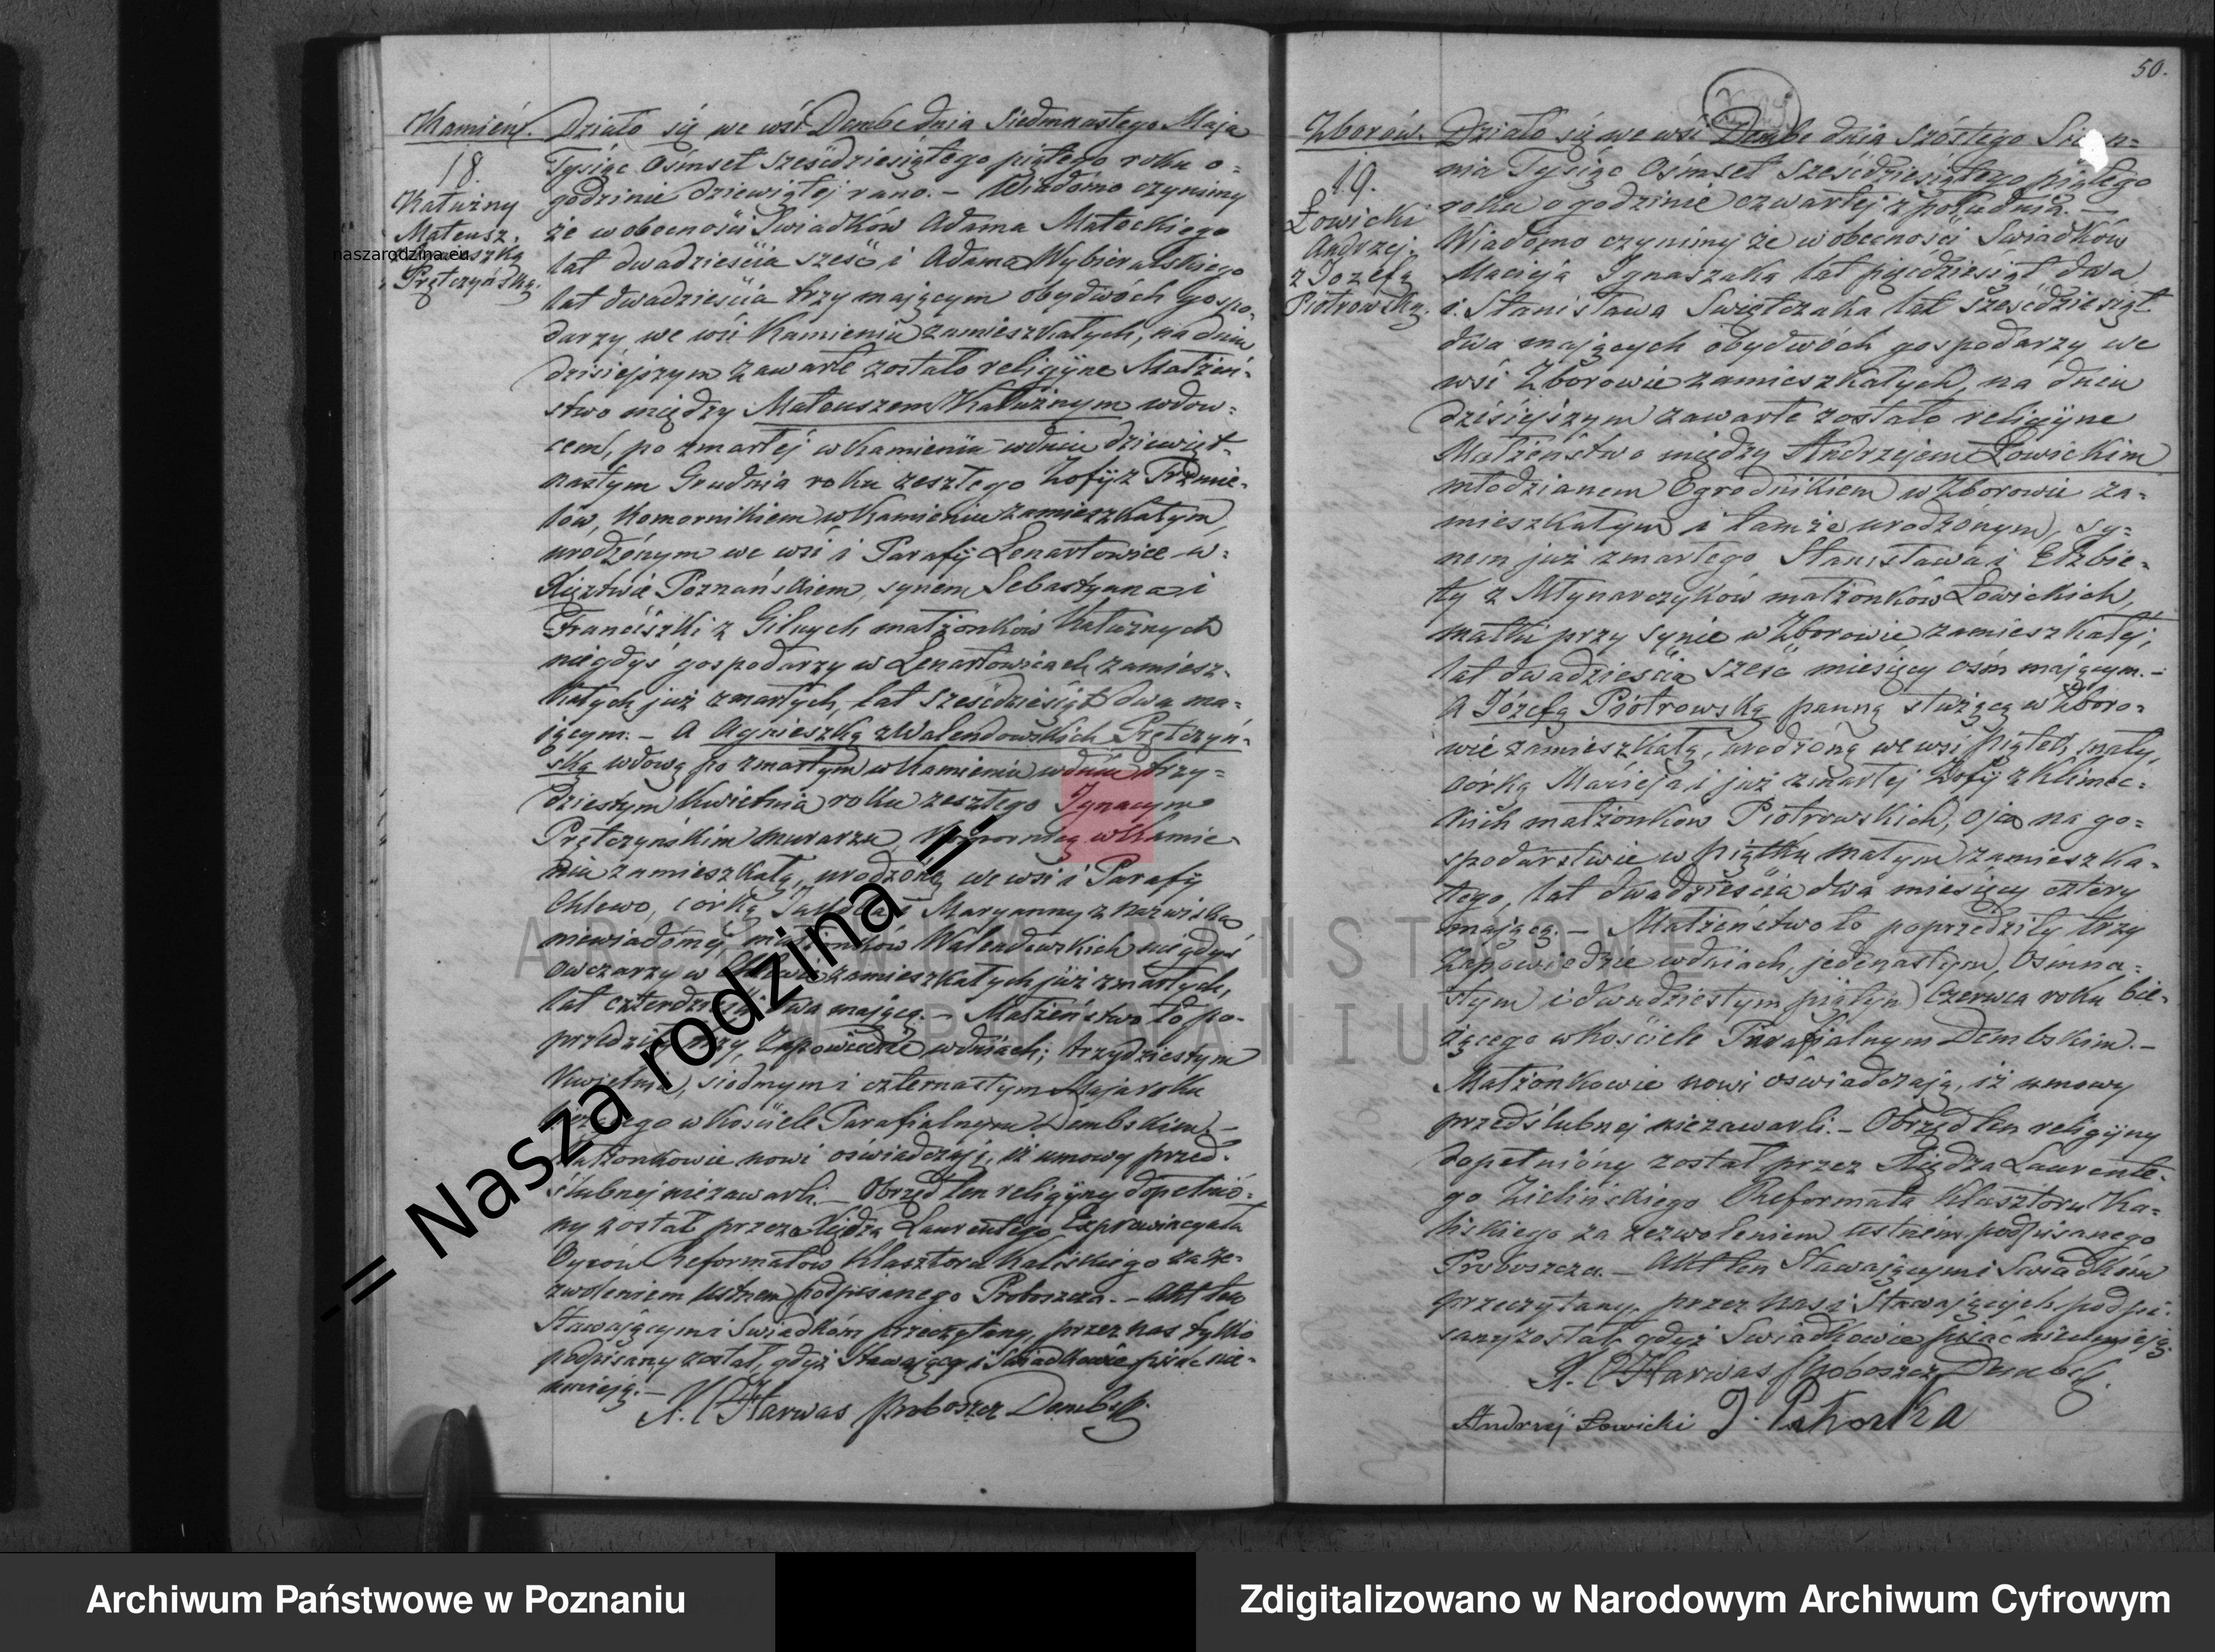 Kamień.
18.
Kałużny
Mateusz.
Agnieszką
Prętczyńską.
naszarodzina.eu
Działo się we wsi Dembe dnia Siedmnastego Maja
Tysiąc Ośmset Sześćdziesiątego piątego roku o=
godzinie dziewiątej rano. – Wiadomo czynimy
że w obecności Świadków Adama Małeckiego
lat dwadzieścia sześć i Adama Wybieralskiego
lat dwadzieścia trzy mającym obydwóch gospo=
darzy we wsi Kamieniu zamieszkałych, na dniu
dzisiejszym zawarte zostało religijne Małżeń=
stwo między Mateuszem Kałużnym wdow=
cem, po zmarłej w Kamieniu w dniu dziewięt=
nastym Grudnia roku zeszłego Zofij z
Komornikiem w Kamieniu zamieszkałym,
urodzonym we wsi i Parafij Lenartowice w=
Księztwie Poznańskiem, synem Sebastyana i
Franciszki z małżonków Kałużnych
niegdyś gospodarzy w Lenartowicach zamiesz=
kałych już zmarłych, lat sześćdziesiąt dwa ma=
jącym. – A Agnieszką z Walendowskich Prętczyń=
ską wdową po zmarłym w Kamieniu w dniu trzy=
dziestym Kwietnia roku zeszłego Ignacym
Prętczyńskim murarzu, Komornicą w Kamie=
niu zamieszkałą, urodzoną we wsi i Parafij
Chlewo, córką Jakóba i Maryanny z nazwiska
niewiadomej małżonków Walendowskich niegdyś
owczarzy w Chlewie zamieszkałych już zmarłych,
lat czterdzieści dwa mającą. – Małżeństwo to po=
przedziły trzy Zapowiedzie w dniach; trzydziestym
Kwietnia, siódmym i czternastym Maja roku
bieżącego w Kościele Parafialnym Dembskim. –
Małżonkowie nowi oświadczają, iż umowy przed=
ślubnej niezawarli. – Obrząd ten religijny dopełnio=
ny został przez Księdza Laurentego Exprowincyała
Oyców Reformatów Klasztoru Kaliskiego za ze=
zwoleniem ustnem podpisanego Proboszcza. – Akt ten
Stawającym i Świadkom przeczytany, przez nas tylko
podpisany został, gdyż Stawający i Świadkowie pisać nie=
umieją. –
X. Harwas Proboszcz Dembski
50.
Zborów.
19.
Łowicki
Andrzej.
z Józefą
Piotrowską.
Działo się we wsi Dembe dnia Szóstego Sierp=
nia Tysiąc Ośmset Sześćdziesiątego piątego
roku o godzinie czwartej z południa. –
Wiadomo czynimy że w obecności Świadków
Macieja Ignaszaka lat pięćdziesiąt dwa
i Stanisława Świętczaka lat sześćdziesiąt
dwa mających obydwóch gospodarzy we
wsi Zborowie zamieszkałych, na dniu
dzisiejszym zawarte zostało religijne
Małżeństwo między Andrzejem Łowickim
młodzianem Ogrodnikiem w Zborowie za=
mieszkałym i tamże urodzonym, sy=
nem już zmarłego Stanisława i Elżbie=
ty z Młynarczyków małżonków Łowickich,
matki przy synie w Zborowie zamieszkałej,
lat dwadzieścia sześć miesięcy ośm mającym. –
A Józefą Piotrowską panną służącą w Zboro=
wie zamieszkałą, urodzoną we wsi Piątek mały,
córką Macieja i już zmarłej Zofij z Klimec=
kich małżonków Piotrowskich, ojca na go=
spodarstwie w Piątku małym zamieszka=
łego, lat dwadzieścia dwa miesięcy cztery
mającą. – Małżeństwo to poprzedziły trzy
Zapowiedzie w dniach, jedenastym, Ośmna=
stym i dwudziestym piątym Czerwca roku bie=
żącego w Kościele Parafialnym Dembskim. –
Małżonkowie nowi oświadczają, iż umowy
przedślubnej niezawarli. – Obrząd ten religijny
dopełniony został przez Księdza Laurente=
go Zielińskiego Reformata Klasztoru Ka=
liskiego za zezwoleniem ustnem podpisanego
Proboszcza. – Akt ten Stawającym i Świadkom
przeczytany, przez nas i Stawających podpi=
sany został, gdyż Świadkowie pisać nieumieją.
X. Harwas Proboszcz Dembski.
Andrzej Łowicki
ARCHIWUM PAŃSTWOWE
W POZNANIU
-= Nasza rodzina =-
Archiwum Państwowe w Poznaniu
Zdigitalizowano w Narodowym Archiwum Cyfrowym